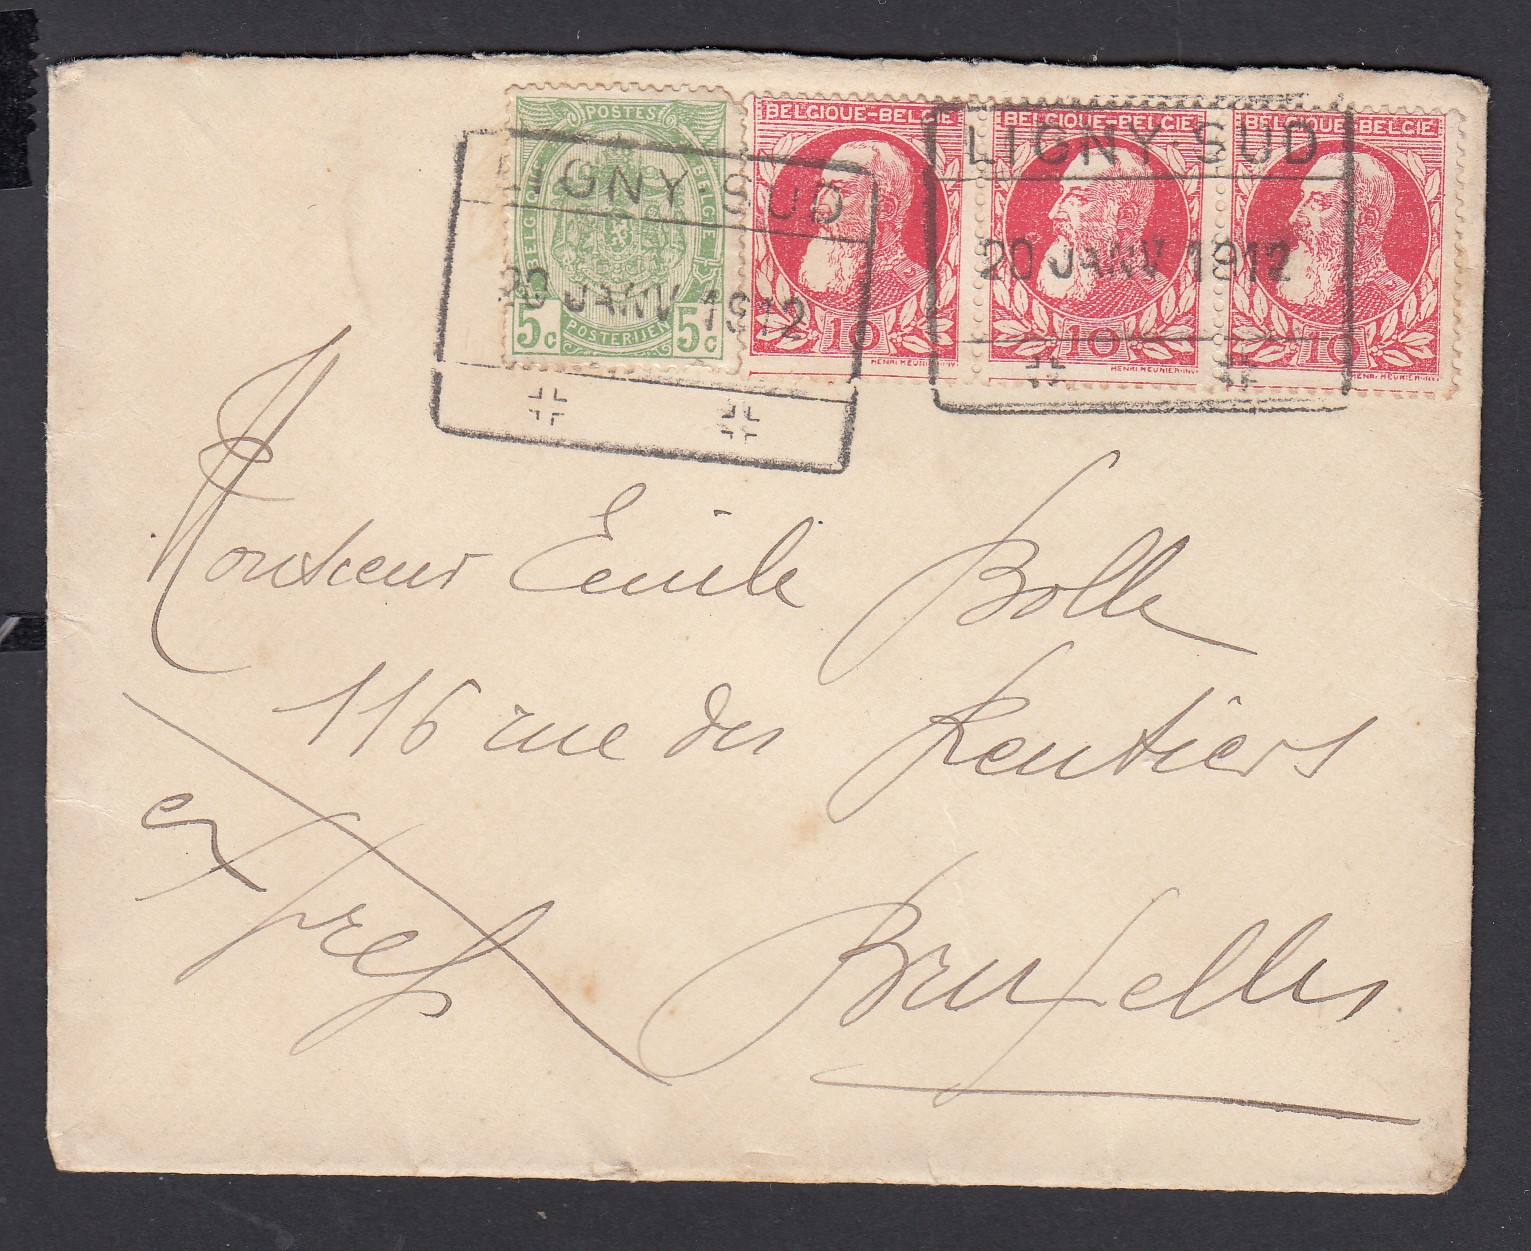 POSTES
BELGIQUE BELGIË
5c POSTERIJEN 5c
BELGIQUE-BELGIE
10
HENRI MEUNIER·INV
BELGIQUE-BELGIE
10
HENRI MEUNIER·INV
BELGIQUE-BELGIE
10
HENRI MEUNIER·INV
LIGNY-SUD
20 JANV 1912
LIGNY-SUD
20 JANV 1912
Monsieur Emile Bolle
116 rue des Rentiers
expres
Bruxelles